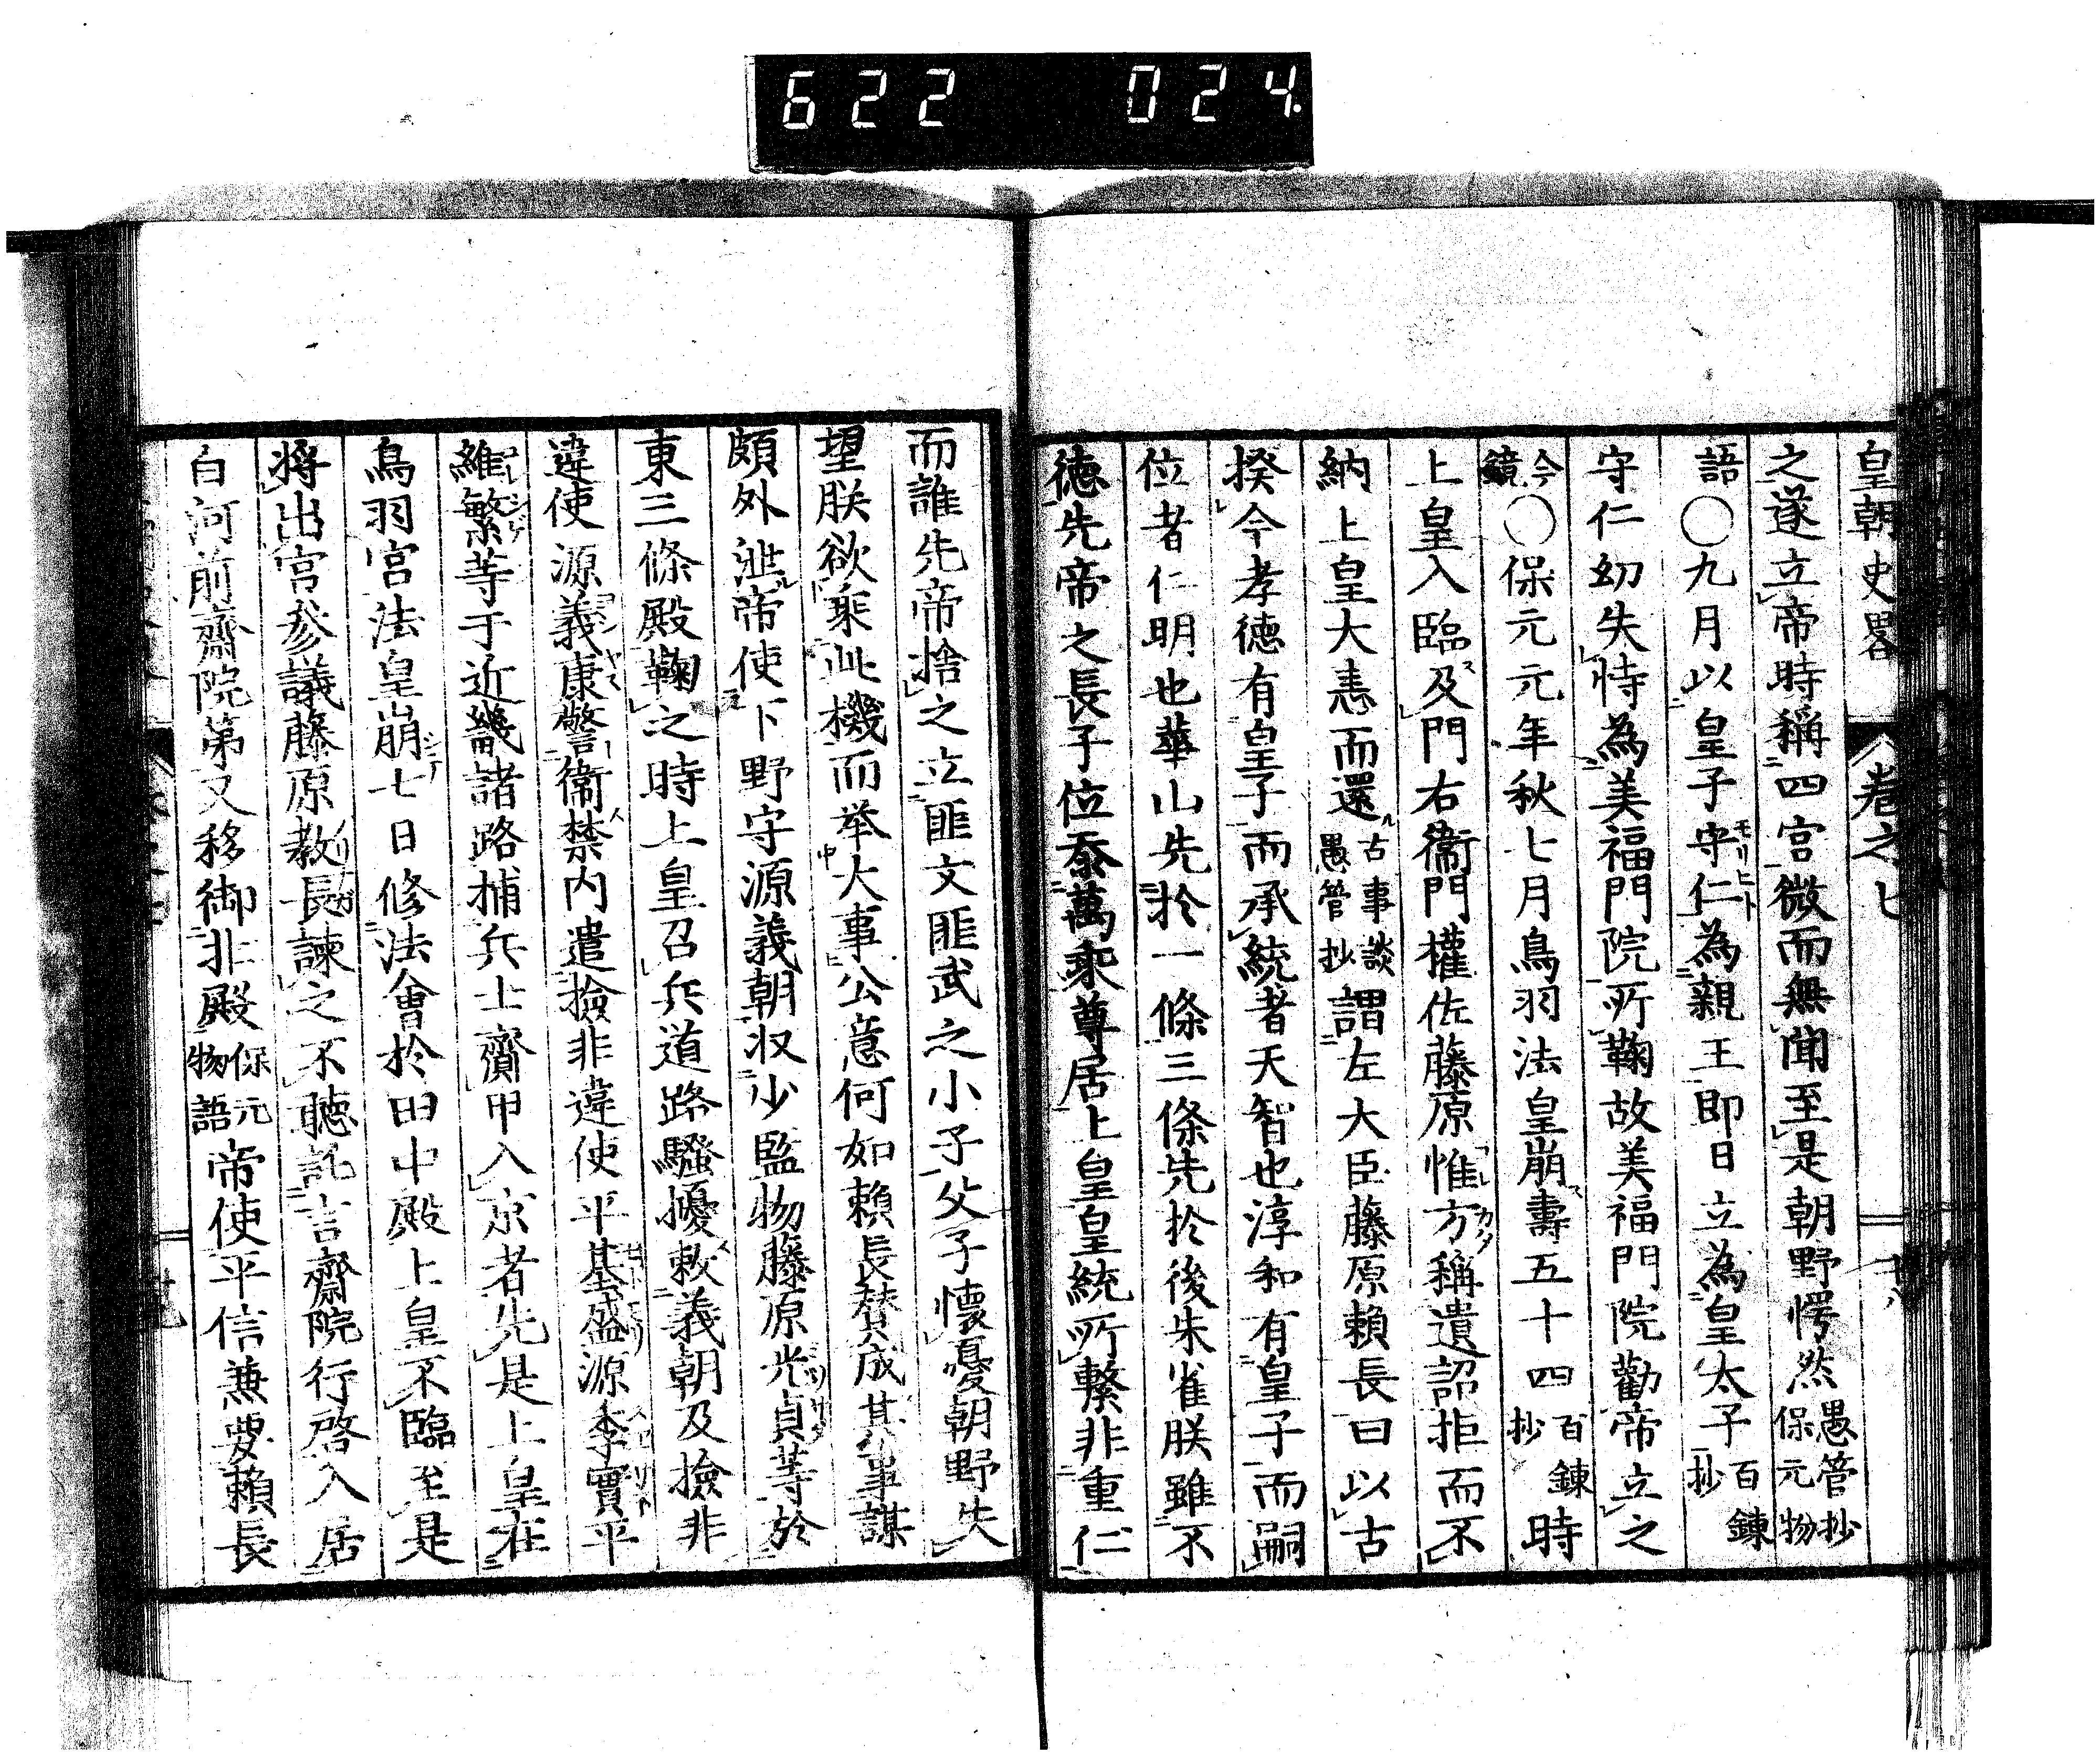 622 024
皇朝史畧 卷之七 十八
之遂立帝時稱四宮微而無聞至是朝野愕然愚管抄保元物
語〇九月以皇子守仁為親王即日立為皇太子百錬抄
守仁幼失恃為美福門院所鞠故美福門院勸帝立之
今鏡〇保元元年秋七月鳥羽法皇崩壽五十四百錬抄時
上皇入臨及門右衞門權佐藤原惟方稱遺詔拒而不
納上皇大恚而還古事談愚管抄謂左大臣藤原頼長曰以古
揆今孝徳有皇子而承統者天智也淳和有皇子而嗣
位者仁明也華山先於一條三條先於後朱雀朕雖不
徳先帝之長子位忝萬乘尊居上皇皇統所繫非重仁
而誰先帝捨之立匪文匪武之小子父子懷憂朝野失
望朕欲乘此機而举大事公意何如頼長賛成其事謀
頗外泄帝使下野守源義朝収少監物藤原光貞等於
東三條殿鞠之時上皇召兵道路騷擾敕義朝及撿非
違使源義康警衞禁内遣撿非違使平基盛源季實平
維繁等于近畿諸路捕兵士齎甲入京者先是上皇在
鳥羽宮法皇崩七日修法會於田中殿上皇不臨至是
将出宮参議藤原教長諫之不聴託言齋院行啓入居
白河前齋院第又移御北殿保元物語帝使平信兼要頼長